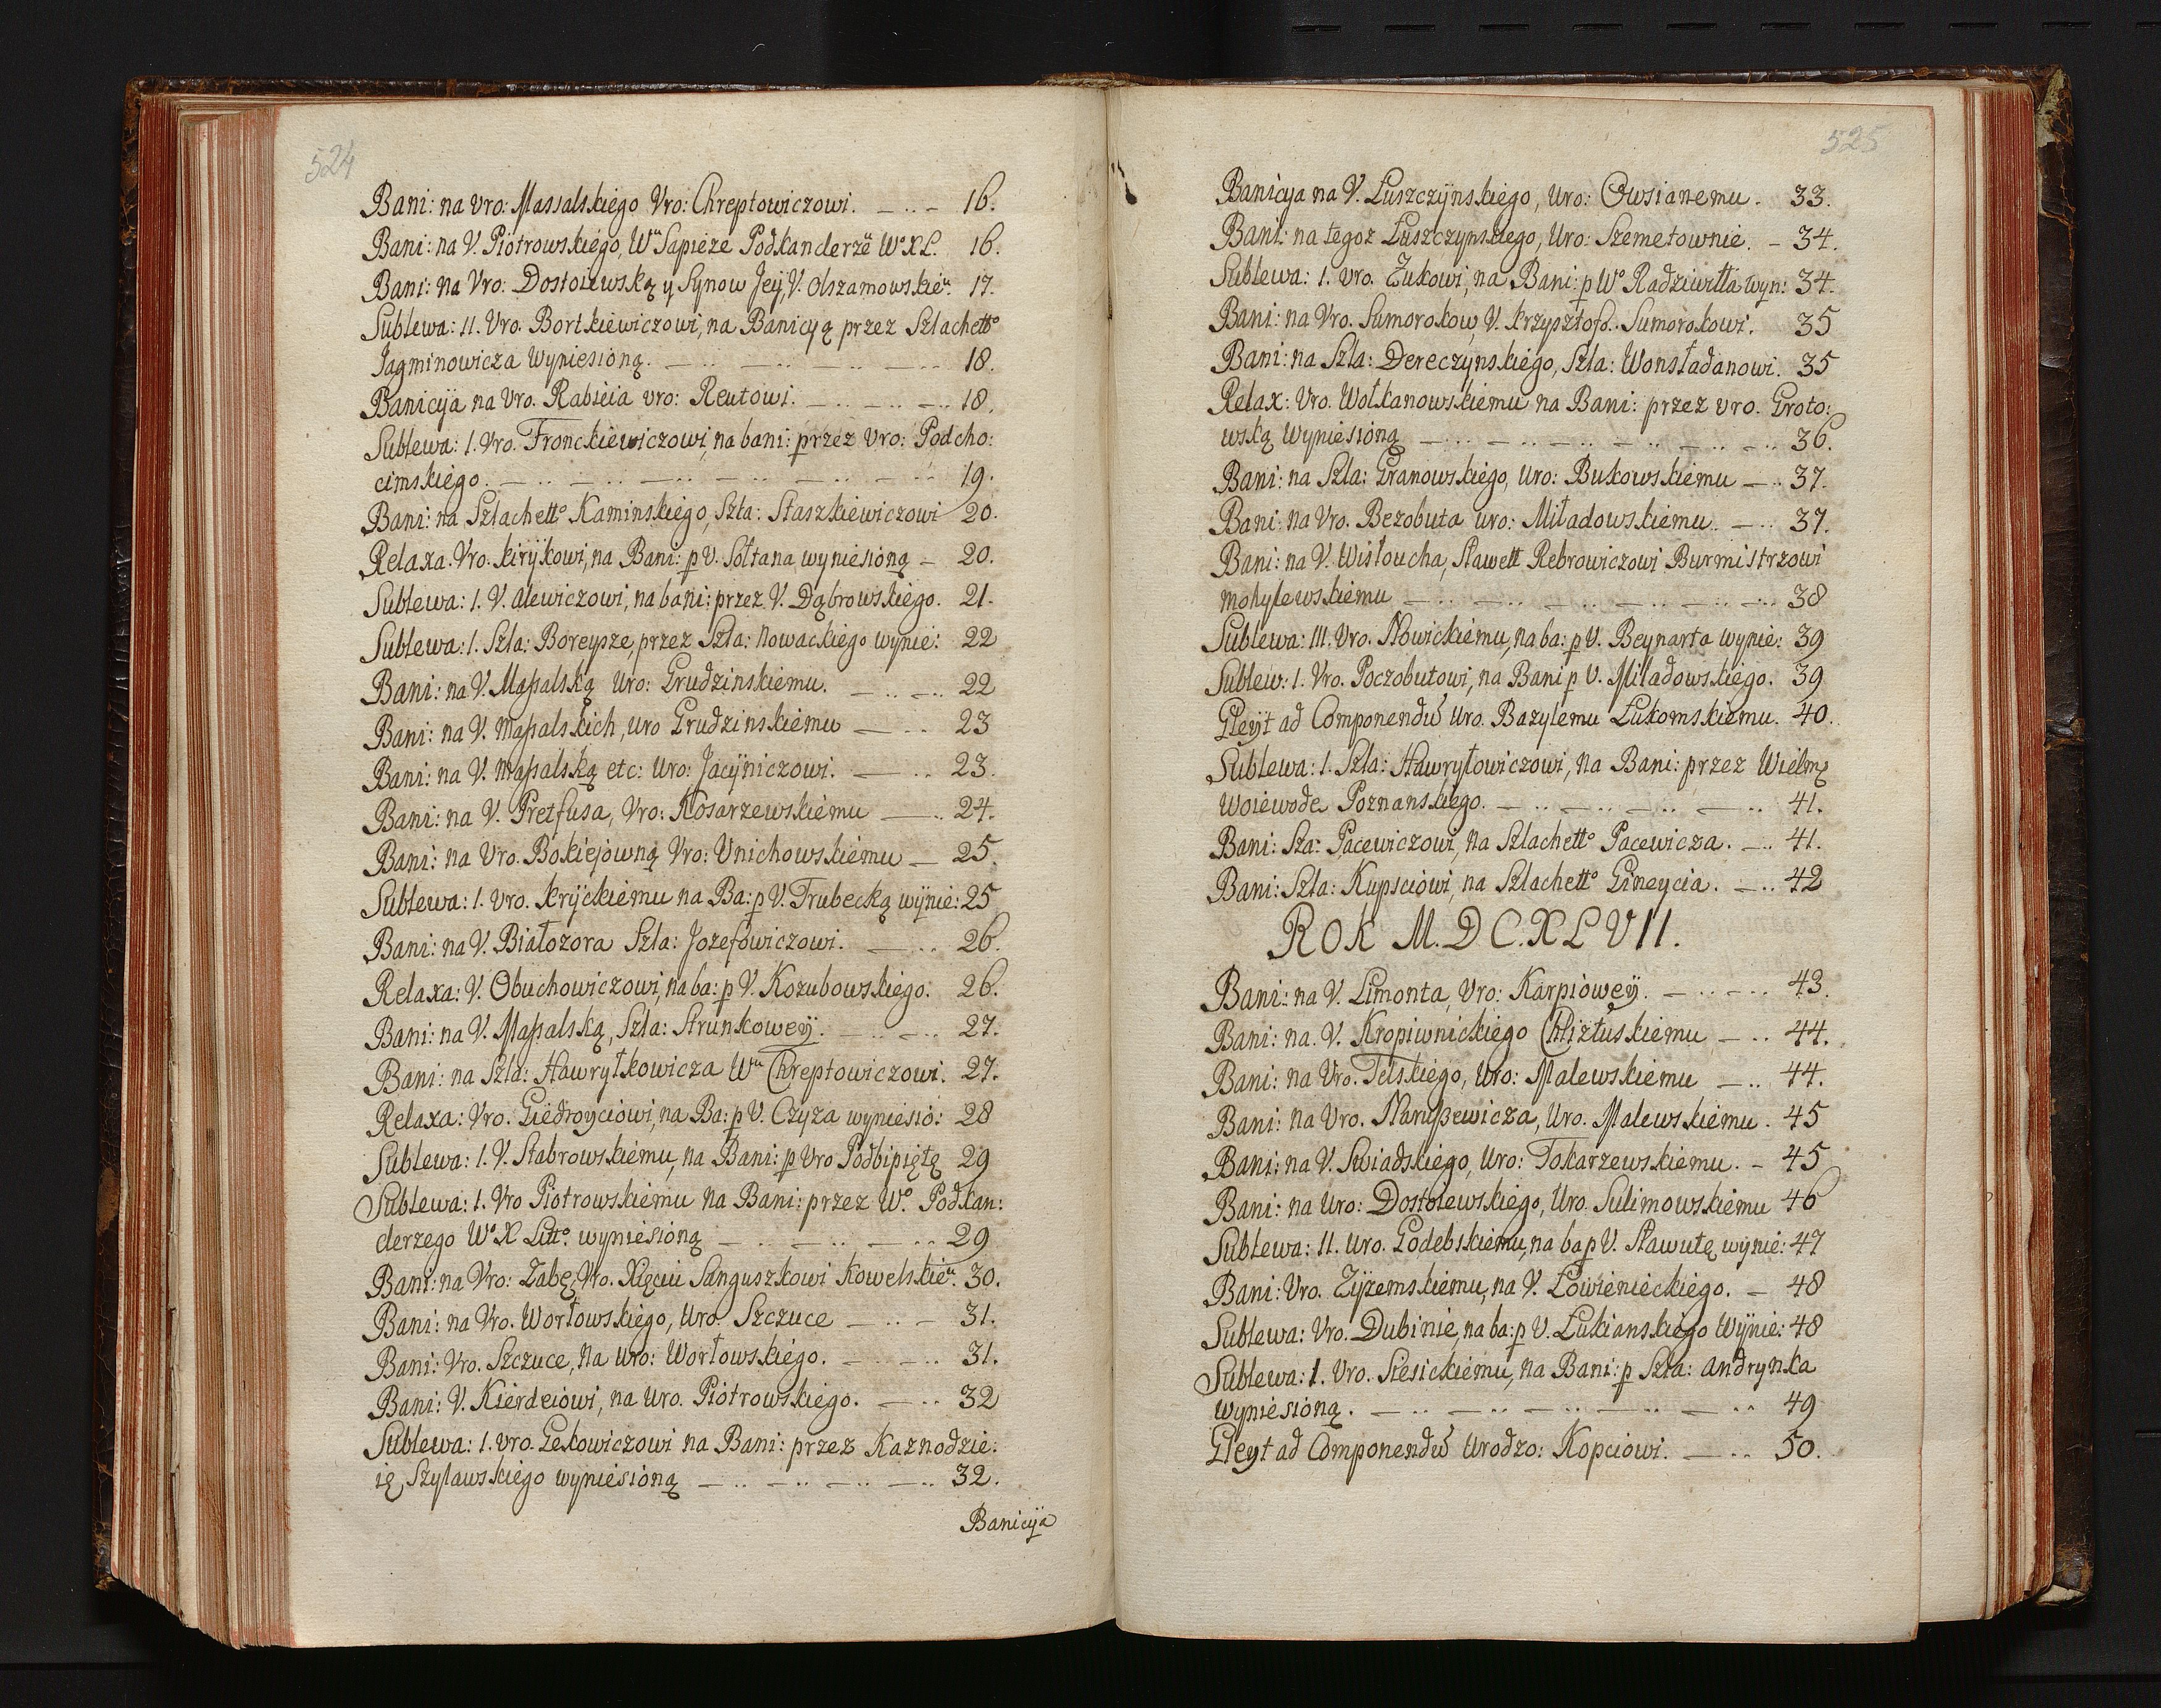 524
Bani: na Vro: Massalskiego Vro: Chreptowiczowi. — .. – 16.
Bani: na V. Piotrowskiégo, Wᵘ Sapieze Podkanclerzĕ Wº X L. 16.
Bani: na Vro: Dostoiewską y Synow Jey, V. Olszamowskieᵘ. 17.
Sublewa: II. Vro. Bortkiewiczowi, na Banicyą przez Szlachettº
Jagminowicza Wyniesioną. — .. — .. — .. — .. 18.
Banicÿa na Vro. Rabieia vro: Reutowi. — .. — .. — .. 18.
Sublewa: I. Vro. Fronckiewiczowi, na bani: przez Vro: Podcho:
cimskiego. — .. — .. — .. — .. — .. 19.
Bani: na Szlachettº Kaminskiégo, Szla: Staszkiéwiczowi 20.
Relaxa. Vro. kirÿkowi, na Bani: p V. Sołtana wyniesioną – 20.
Sublewa: I. V. Alewiczowi, na bani: przez V. Dąbrowskiego. 21.
Sublewa: I. Szla: Boreysze, przez Szla: Nowackiego wynie: 22
Bani: na V. Maßalską Uro: Grudzinskiemu. — .. — .. 22
Bani: na V. Maßalskich, uro Grudzinskiemu — .. 23
Bani: na V. Maßalską etc: Uro: Jacÿniczowi. — .. 23.
Bani: na V. Pretfusa, Vro: Kosarzewskiému — .. 24.
Bani: na Vro. Bokiejowną Vro: Unichowskiému — 25.
Sublewa: I. Vro. krÿckiému na Ba: p V. Trubecką wÿnie: 25
Bani: na V. Białozora Szla: Jozefowiczowi. — .. 26.
Relaxa: V. Obuchowiczowi, na ba: p V. Kozubowskiego. 26.
Bani: na V. Maßalską, Szla: Strunkoweÿ. — .. — .. 27.
Bani: na Szla: Hawryłkowicza Wᵘ Chreptowiczowi. 27.
Relaxa: Vro. Giedroyciowi, na Ba: p V. Czyza wyniesio: 28
Sublewa: I. V. Stabrowskiému, na Bani: p Vro Podbipiętę 29
Sublewa: I. Vro Piotrowskiému na Bani: przez Wº. Podkan:
clerzego Wº X Littº. wyniesioną — .. — .. — .. 29
Bani: na Vro: Zabę, Vro. Xięciu Sanguszkowi Kowelskieᵘ. 30.
Bani: na Vro. Worłowskiégo, Uro. Szczuce — .. – 31.
Bani: Vro. Szczuce, na Uro: Worłowskiégo. — .. — .. 31.
Bani: V. Kiérdeiowi, na Uro. Piotrowskiego. — .. 32
Sublewa: I. Vro. Gekowiczowi na Bani: przez Kaznodzie:
ię Szylawskiego wyniésioną — .. — .. — .. — .. 32.
Banicÿa
525
Banicya na V. Łuszczÿnskiégo, Uro: Owsianemu. 33.
Bani: na tegoz Łuszczynskiego, Uro: Szemetownie. – 34.
Sublewa: I. Vro. Zukowi, na Bani: p Wº Radziwiłła wyn: 34.
Bani: na Vro. Sumorokow, V. krzysztofo. Sumorokowi. 35
Bani: na Szla: Dereczÿnskiégo, Szla: Wonsładanowi. 35
Relax: Vro. Wołkanowskiému na Bani: przez vro. Groto:
wską Wyniesioną — .. — .. — .. — .. — .. 36.
Bani: na Szla: Granowskiégo, Uro: Bukowskiému — .. 37.
Bani: na Vro. Bezobuta uro: Miładowskiému. — .. 37.
Bani: na V. Wisłoucha, Sławett Rebrowiczowi Burmistrzowi
mohylewskiému — .. — .. — .. — .. — .. 38
Sublewa: III. Vro. Nowickiému, na ba: p V. Beynarta wynie: 39
Sublew: I. Vro. Poczobutowi, na Bani p V. Miładowskiégo. 39
Gleyt ad Componendū Uro. Bazylemu Łukomskiému. 40.
Sublewa: I. Szla: Hawryłowiczowi, na Bani: przez Wielmº
Woiewode Poznanskiego. — .. — .. — .. — .. 41.
Bani: Sza: Pacewiczowi, na Szlachettº Pacewicza. — .. 41.
Bani: Szla: Kupsciowi, na Szlachettº Gineycia. — .. 42
ROK M. D C. X L V I I.
Bani: na V. Limonta, Vro: Karpiowey. — .. — .. 43.
Bani: na. V. Kropiwnickiégo Chliztuskiému — .. 44.
Bani: na Vro. Telskiégo, Uro: Malewskiému — .. 44.
Bani: na Vro. Narußewicza, Uro. Malewskiému. 45
Bani: na V. Swiadskiego, Uro: Tokarzewskiemu. – 45
Bani: na Uro: Dostoiewskiégo, Uro. Sulimowskiému 46
Sublewa: II. Uro. Godebskiemu, na ba p V. Sławutę wynie: 47
Bani: Vro. Zÿzemskiemu, na V. Łowienieckiégo. – 48
Sublewa: Vro. Dubinie, na ba: p V. Łukianskiégo Wÿnie: 48
Sublewa: I. Vro. Slesickiému, na Bani: p Szla: Andrynka
wyniesioną. — .. — .. — .. — .. — .. 49
Gleyt ad Componendū Urodzo: Kopciowi. — .. 50.